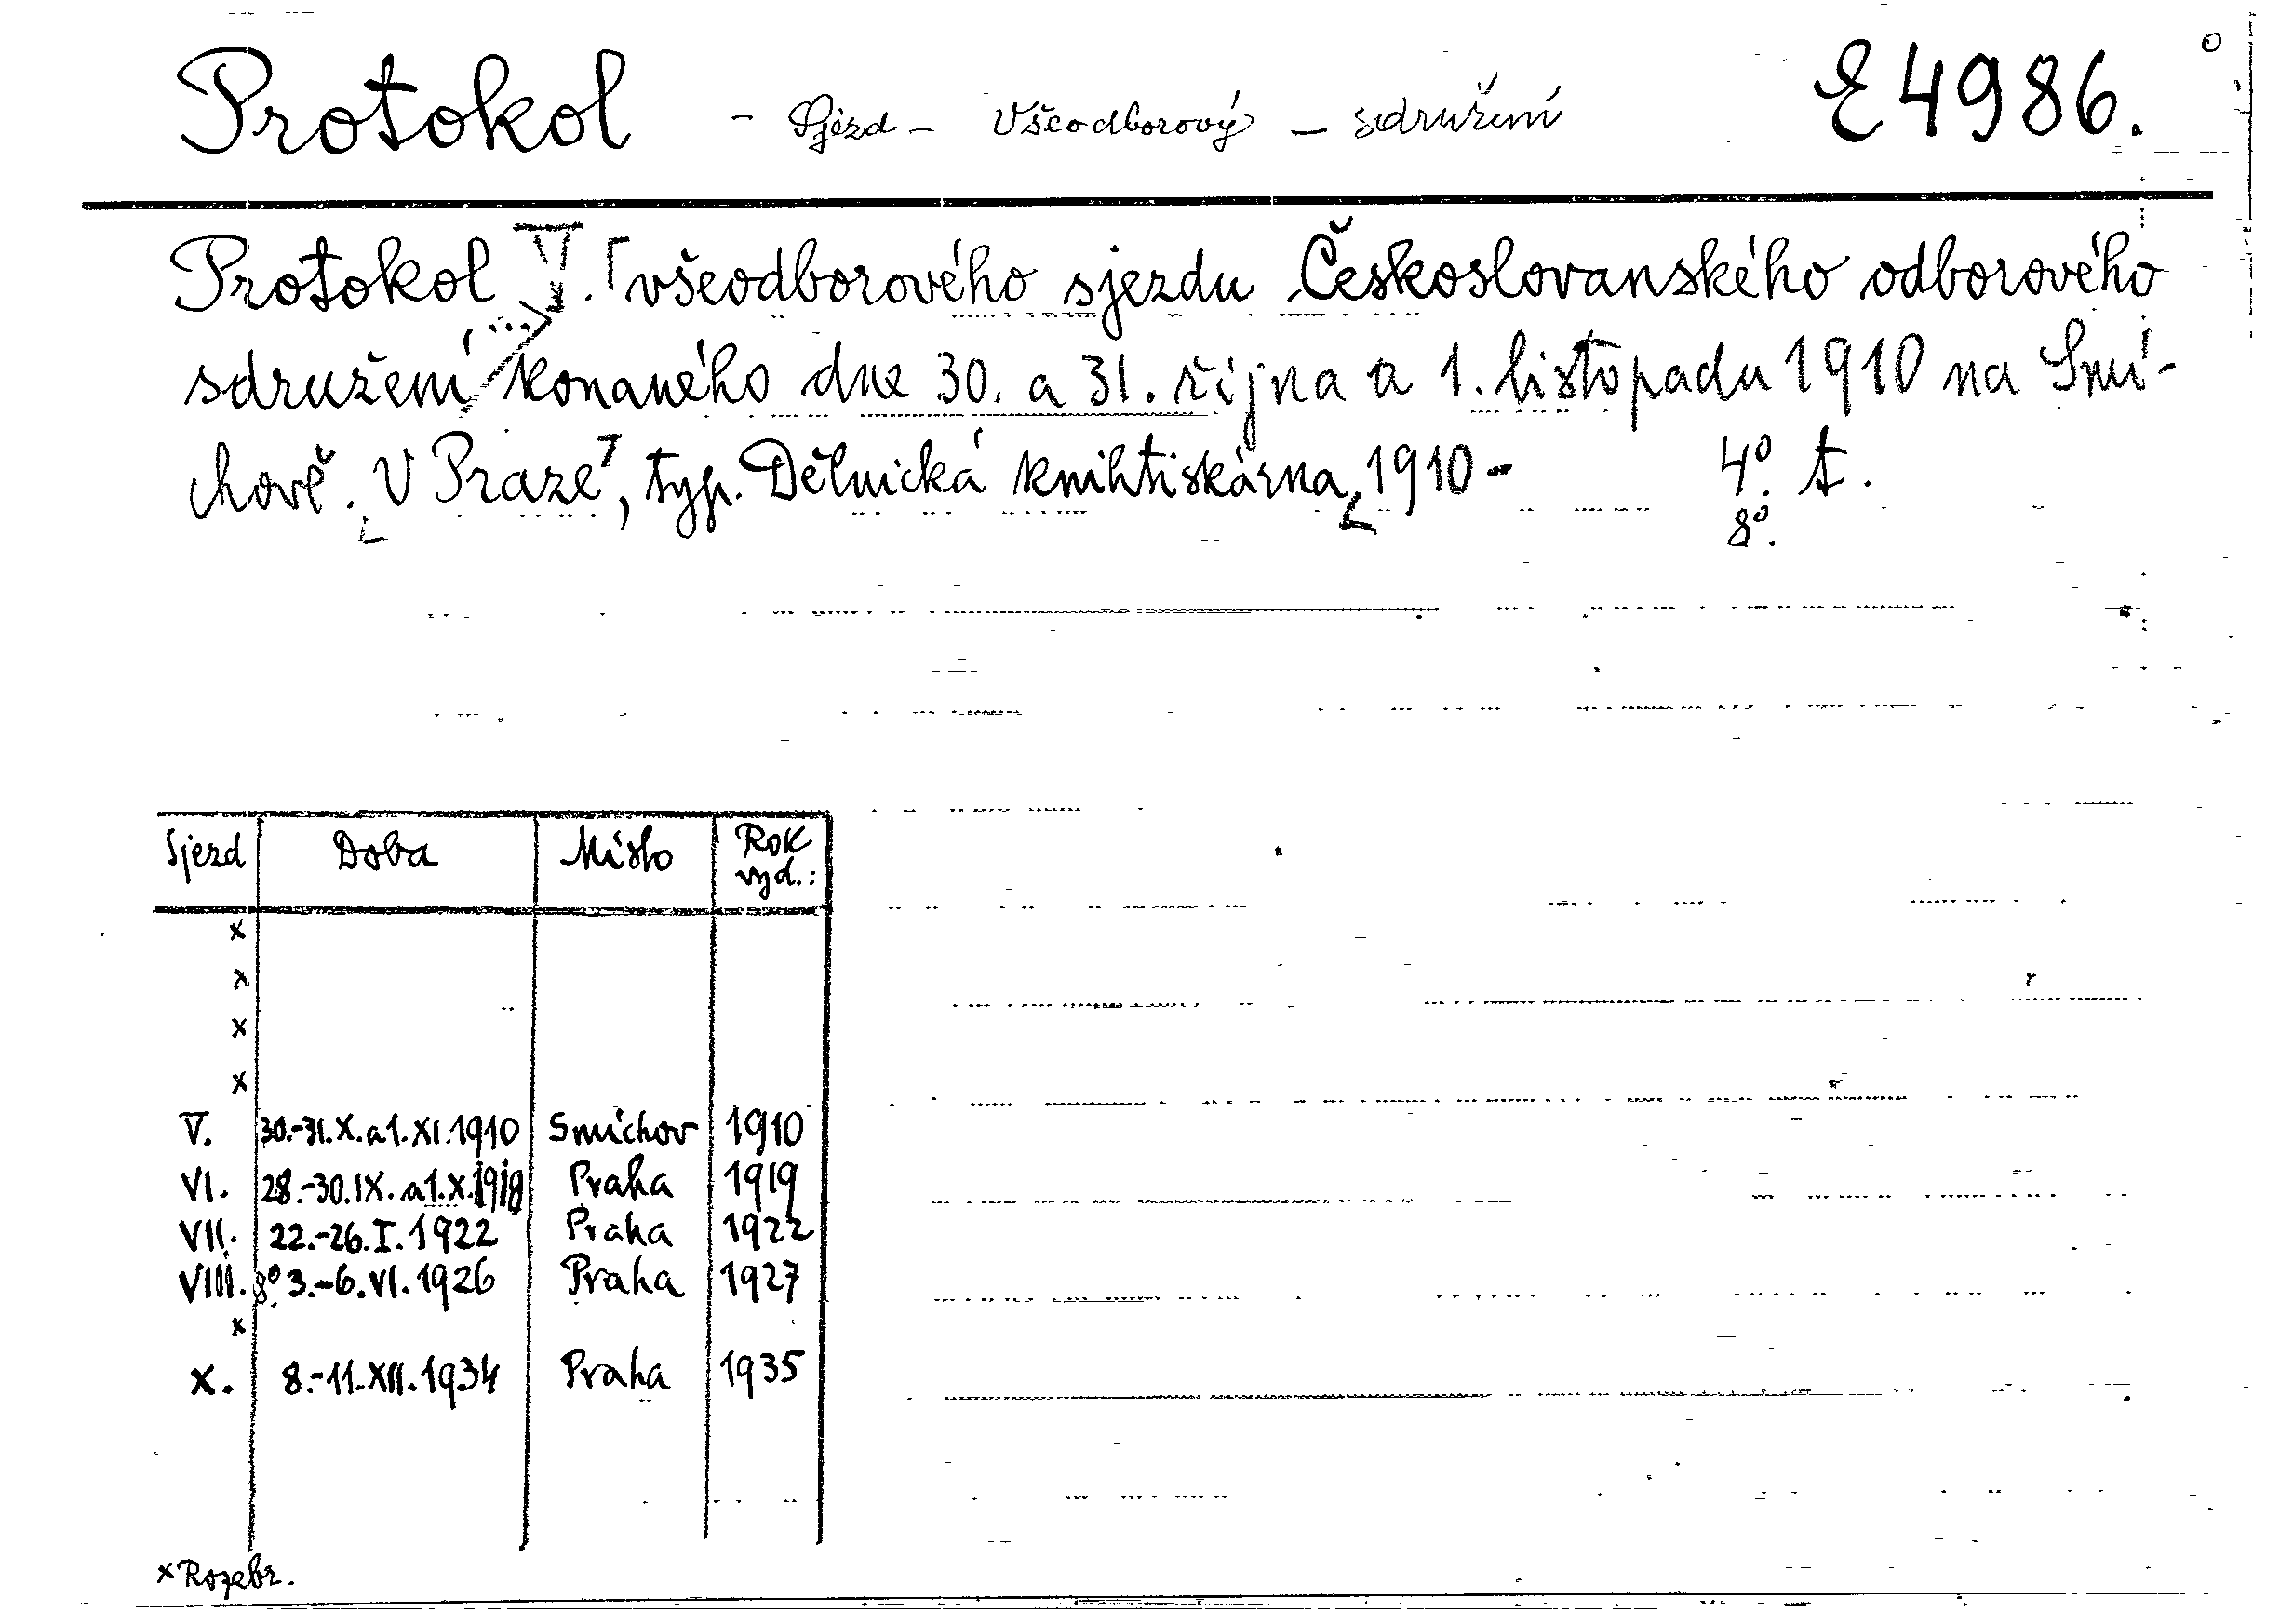 Protokol - Sjezd - Všeodborový - sdružení E 4986.
Protokol V. všeodborového sjezdu Českoslovanského odborového
sdružení konaného dne 30. a 31. října a 1. listopadu 1910 na Smí-
chově. V Praze, typ. Dělnická knihtiskárna, 1910- 4º. t.
8º.
Sjezd Doba Místo Rok vyd.:
x
x
x
x
V. 30.-31.X. a 1.XI.1910 Smíchov 1910
VI. 28.-30.IX. a 1.X. Praha 1919
VII. 22.-26.I.1922 Praha 1922
VIII. 8º. 3.-6.VI.1926 Praha 1927
x
X. 8.-11.XII.1934 Praha 1935
x Rozebr.